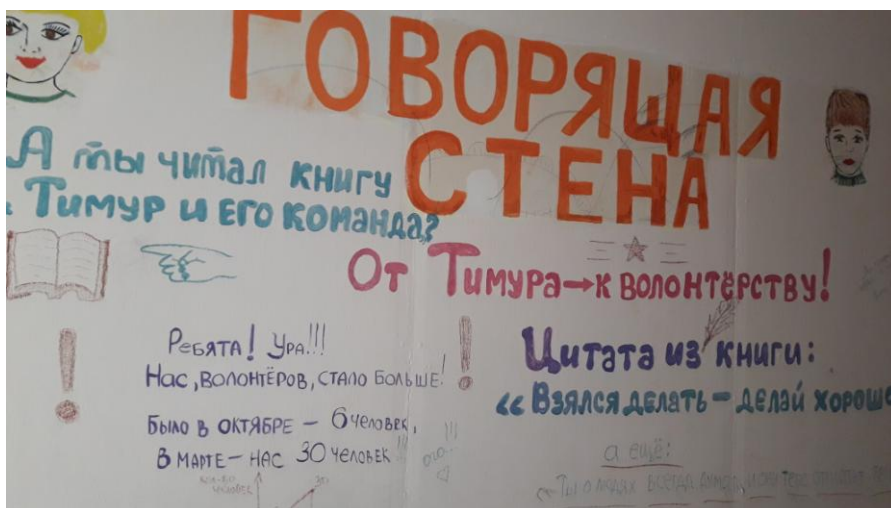 ГОВОРЯЩАЯ
СТЕНА
А ты читал книгу
Тимур и его команда?
От Тимура→к волонтёрству!
Ребята! Ура!!!
Нас, волонтёров, стало больше!
Было в октябре – 6 человек,
В марте – нас 30 человек!!!
ого...
Кол-во
человек
30
Цитата из книги:
«Взялся делать – делай хорошо
а ещё:
Ты о людях всегда думал, и они тебе